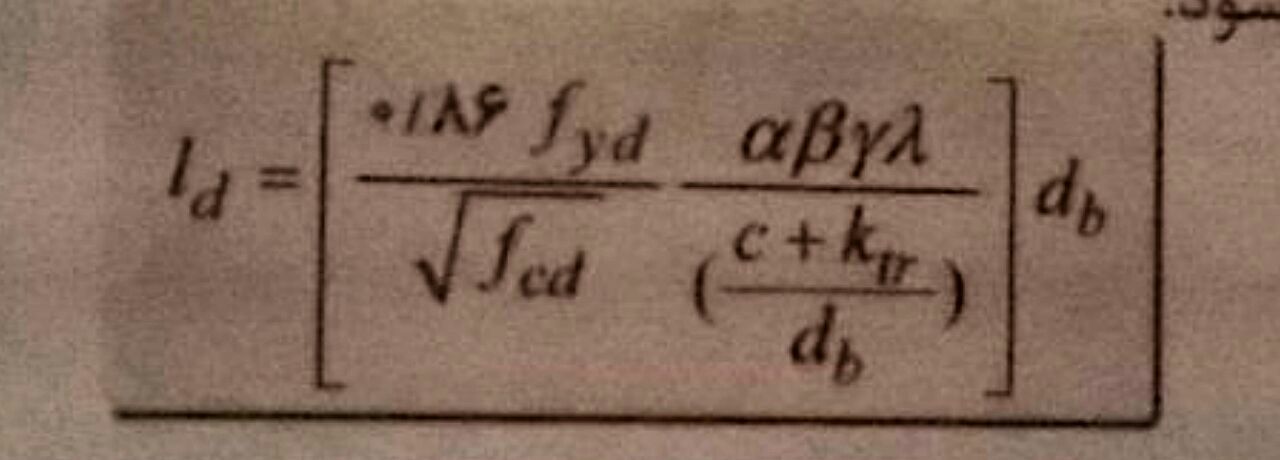 l_d = [ \frac{۰/۸۶ f_{yd}}{\sqrt{f_{cd}}} \frac{αβγλ}{(\frac{c + k_{tr}}{d_b})} ] d_b